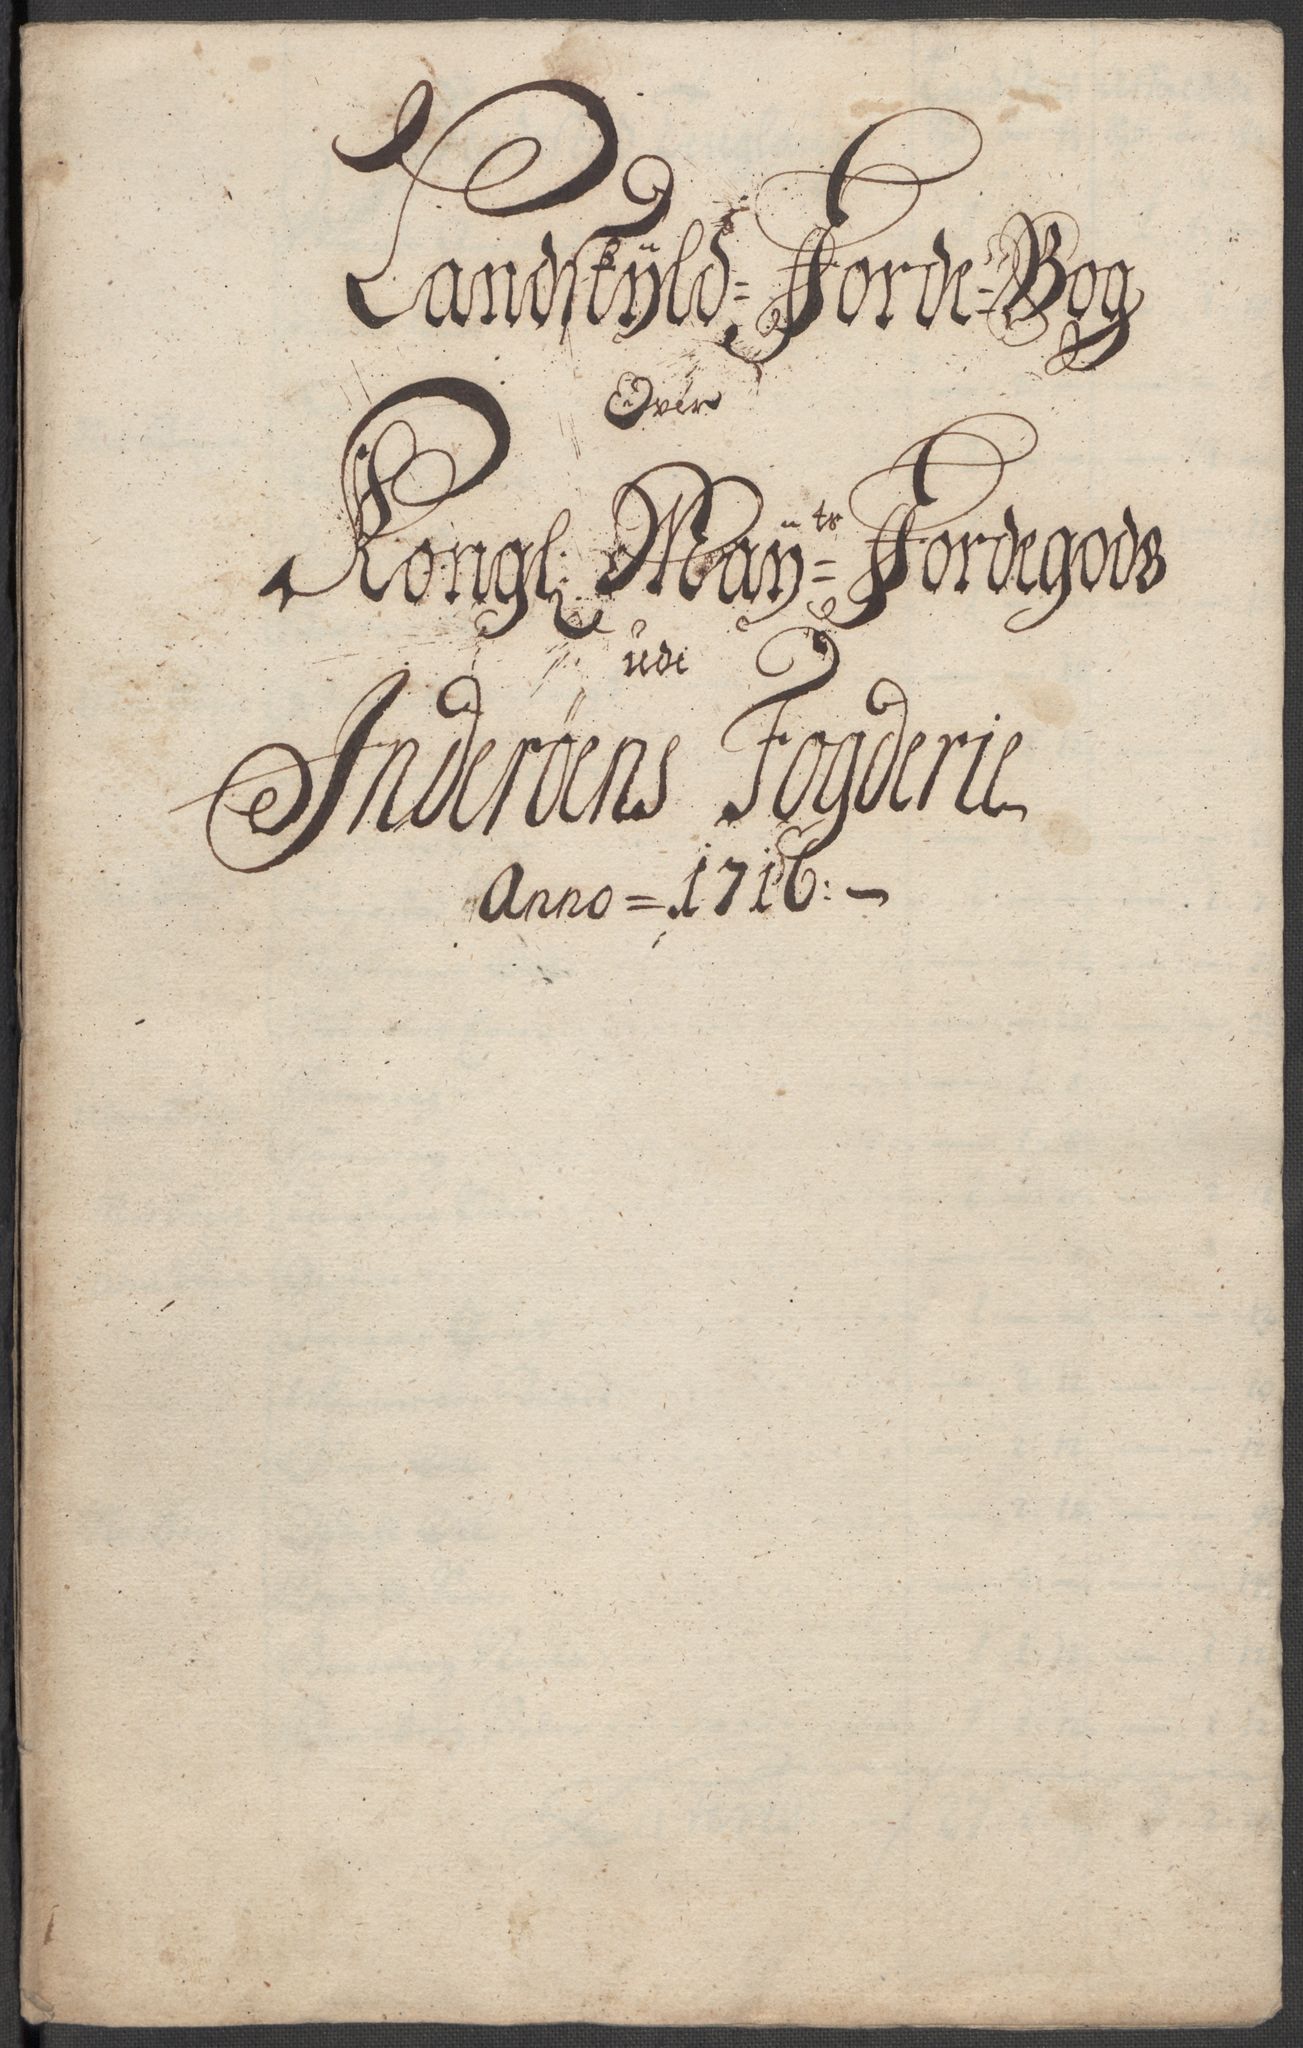 Landskÿld= Jorde=Bog
Over
Kongl: Maÿ=ts Jordegods
udi
Inderöens Fogderie
Anno = 1716: —